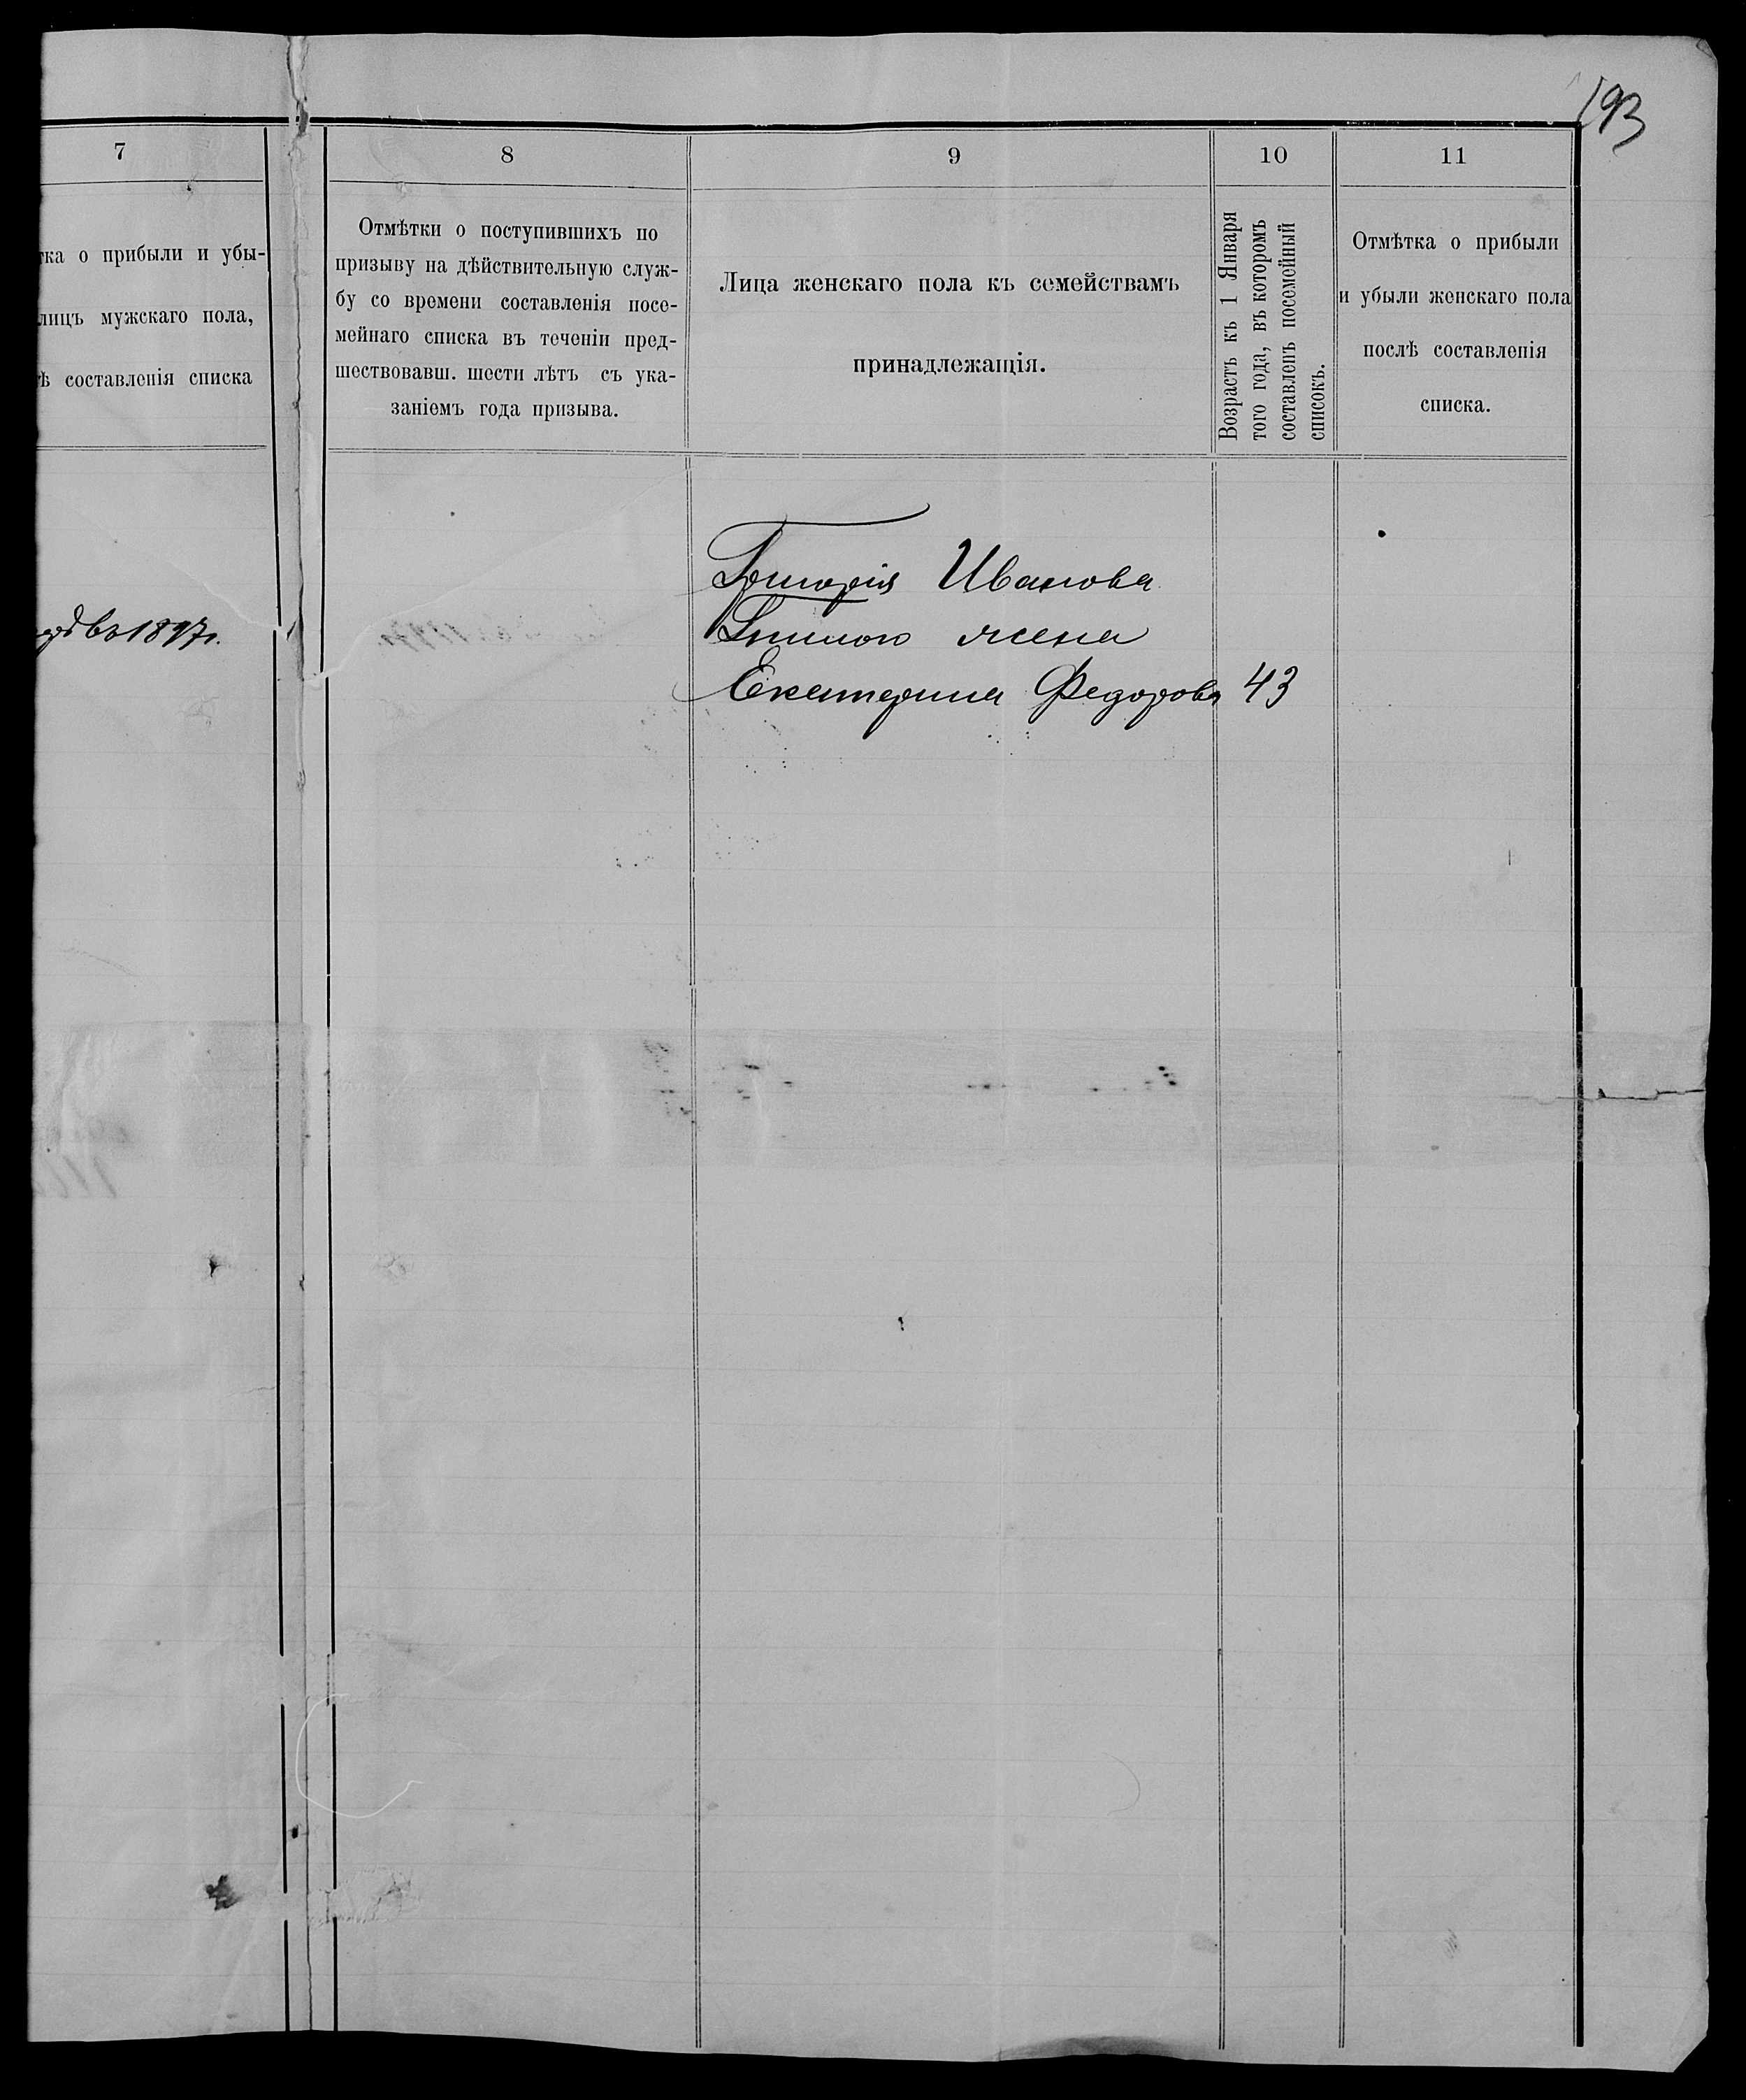 193
7
8
9
10
11
тка о прибыли и убы-
лицъ мужскаго пола,
ѣ составленія списка
Отмѣтки о поступившихъ по
призыву на дѣйствительную служ-
бу со времени составленія посе-
мейнаго списка въ теченіи пред-
шествовавш. шести лѣтъ съ ука-
заніемъ года призыва.
Лица женскаго пола къ семействамъ
принадлежащія.
Возрастъ къ 1 Января
того года, въ которомъ
составленъ посемейный
списокъ.
Отмѣтка о прибыли
и убыли женскаго пола
послѣ составленія
списка.
1897г.
Григорія Иванова
жена
Екатерина Федорова 43